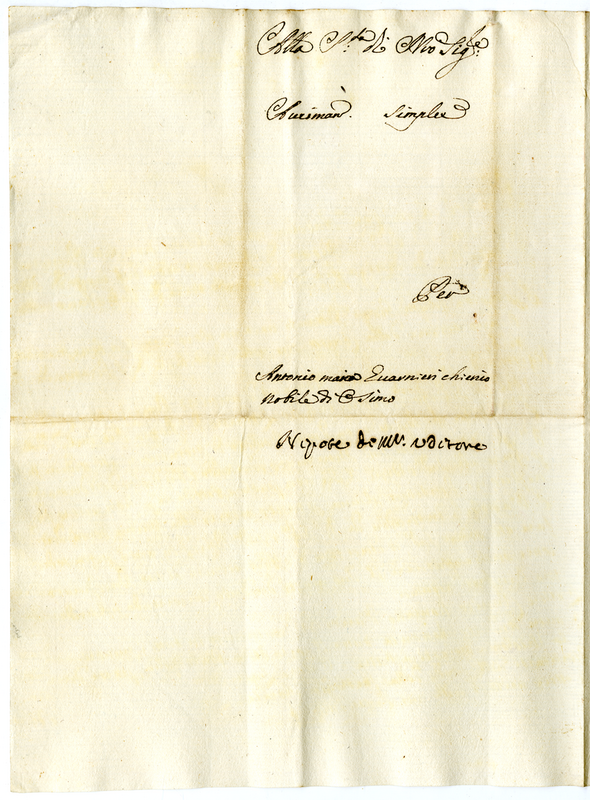 Alla S.tà di N͞ro Sig.re
Clericand. Simplex
Per
Antonio maria Guarnieri chierico
nobile di Osimo
Nipote di Mr. Uditore